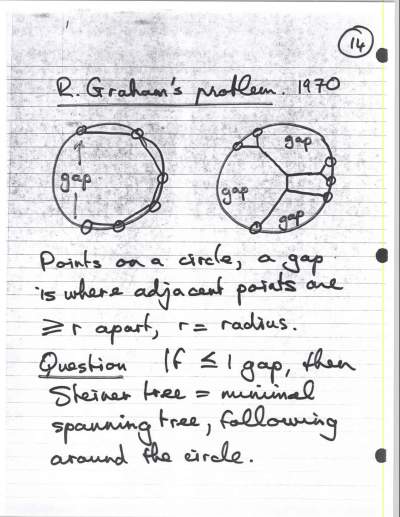 14
R. Graham's problem. 1970
gap
gap
gap
gap
Points on a circle, a gap
is where adjacent points are
≥ r apart, r = radius.
Question If ≤ 1 gap, then
Steiner tree = minimal
spanning tree, following
around the circle.